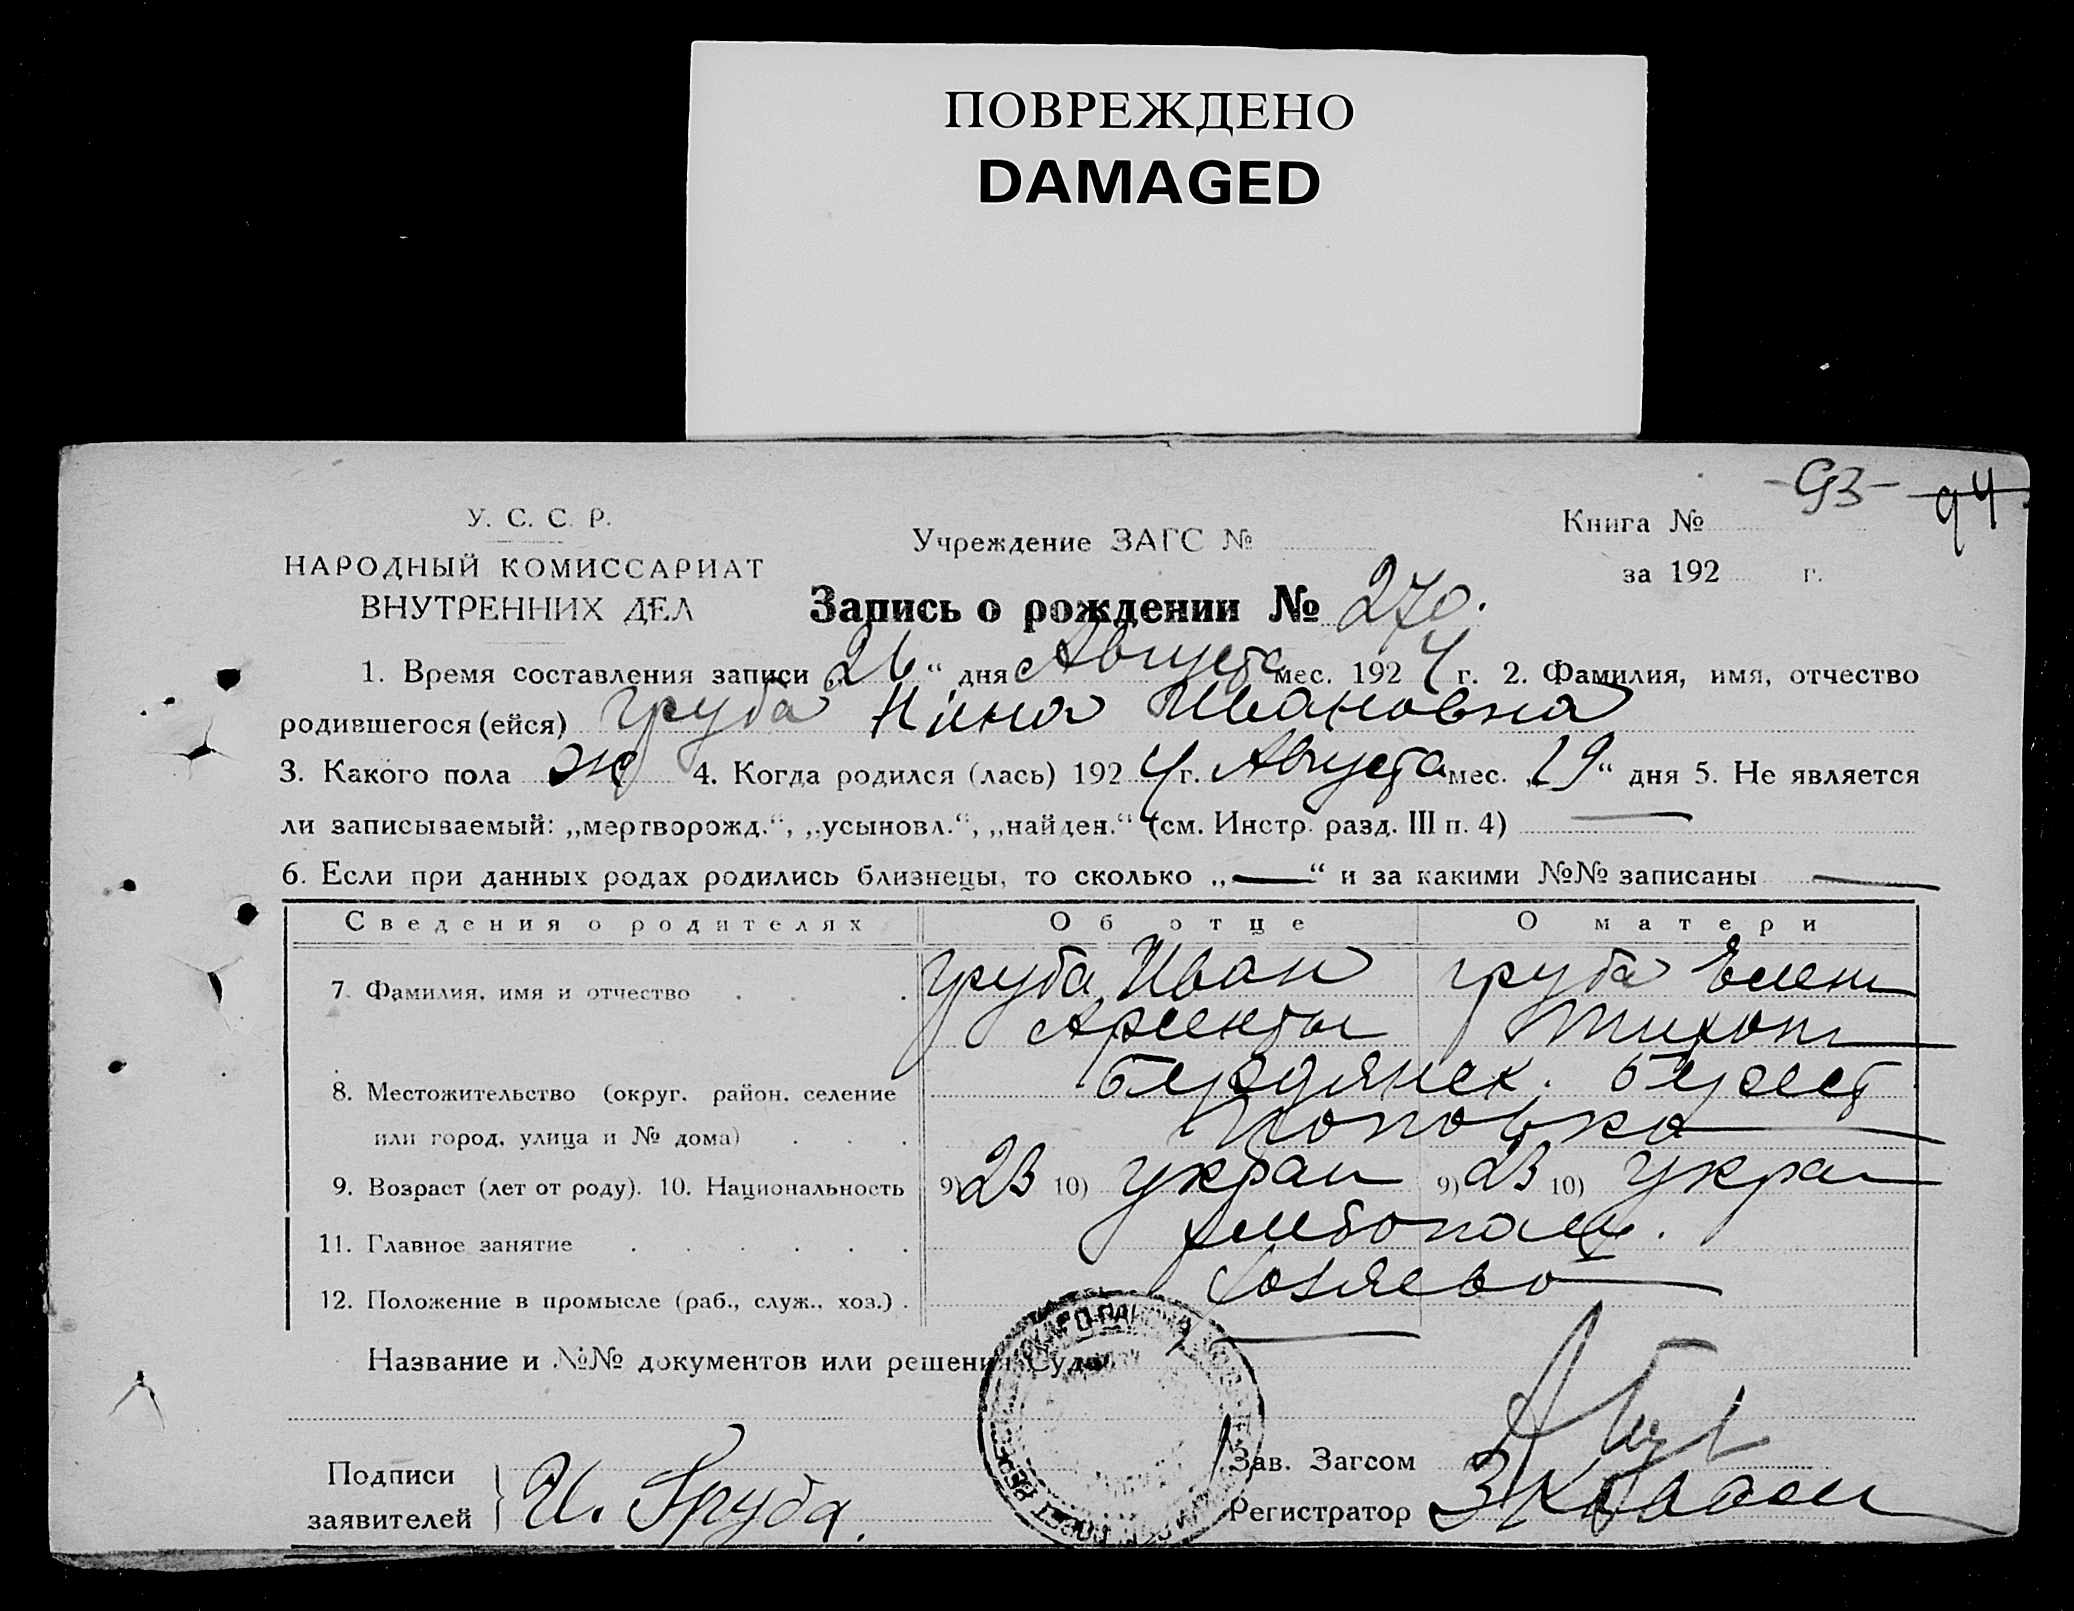 ПОВРЕЖДЕНО
DAMAGED
-93- 94
У. С. С. Р.
НАРОДНЫЙ КОМИССАРИАТ
ВНУТРЕННИХ ДЕЛ
Учреждение ЗАГС №
Книга №
за 192 г.
Запись о рождении № 270.
1. Время составления записи „26“ дня Августа мес. 1924 г. 2. Фамилия, имя, отчество
родившегося (ейся) Груба Нина Ивановна
3. Какого пола ж 4. Когда родился (лась) 1924 г. Августа мес. „19“ дня 5. Не является
ли записываемый: „мертворожд.“, „усыновл.“, „найден.“ (см. Инстр. разд. III п. 4) —
6. Если при данных родах родились близнецы, то сколько „—“ и за какими №№ записаны —
Сведения о родителях Об отце О матери
7. Фамилия, имя и отчество Груба Иван Груба Елен
Арсенты Тихон
8. Местожительство (округ, район, селение Бердянск. Берест
или город, улица и № дома) Поповка
9. Возраст (лет от роду). 10. Национальность 9) 23 10) украи 9) 23 10) Украи
11. Главное занятие хлебопаш.
12. Положение в промысле (раб., служ., хоз.) Хозяево
Название и №№ документов или решения Суда —
Подписи
заявителей И. Груба.
Зав. Загсом
Регистратор